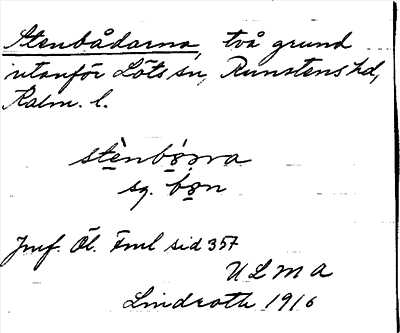 Stenbådarna, två grund
utanför Löts sn, Runstens hd,
Kalm. l.
stènbǫ́ɔna
sg. bǫn
Jmf. Öl. Fml sid 357
ULMA
Lindroth 1916